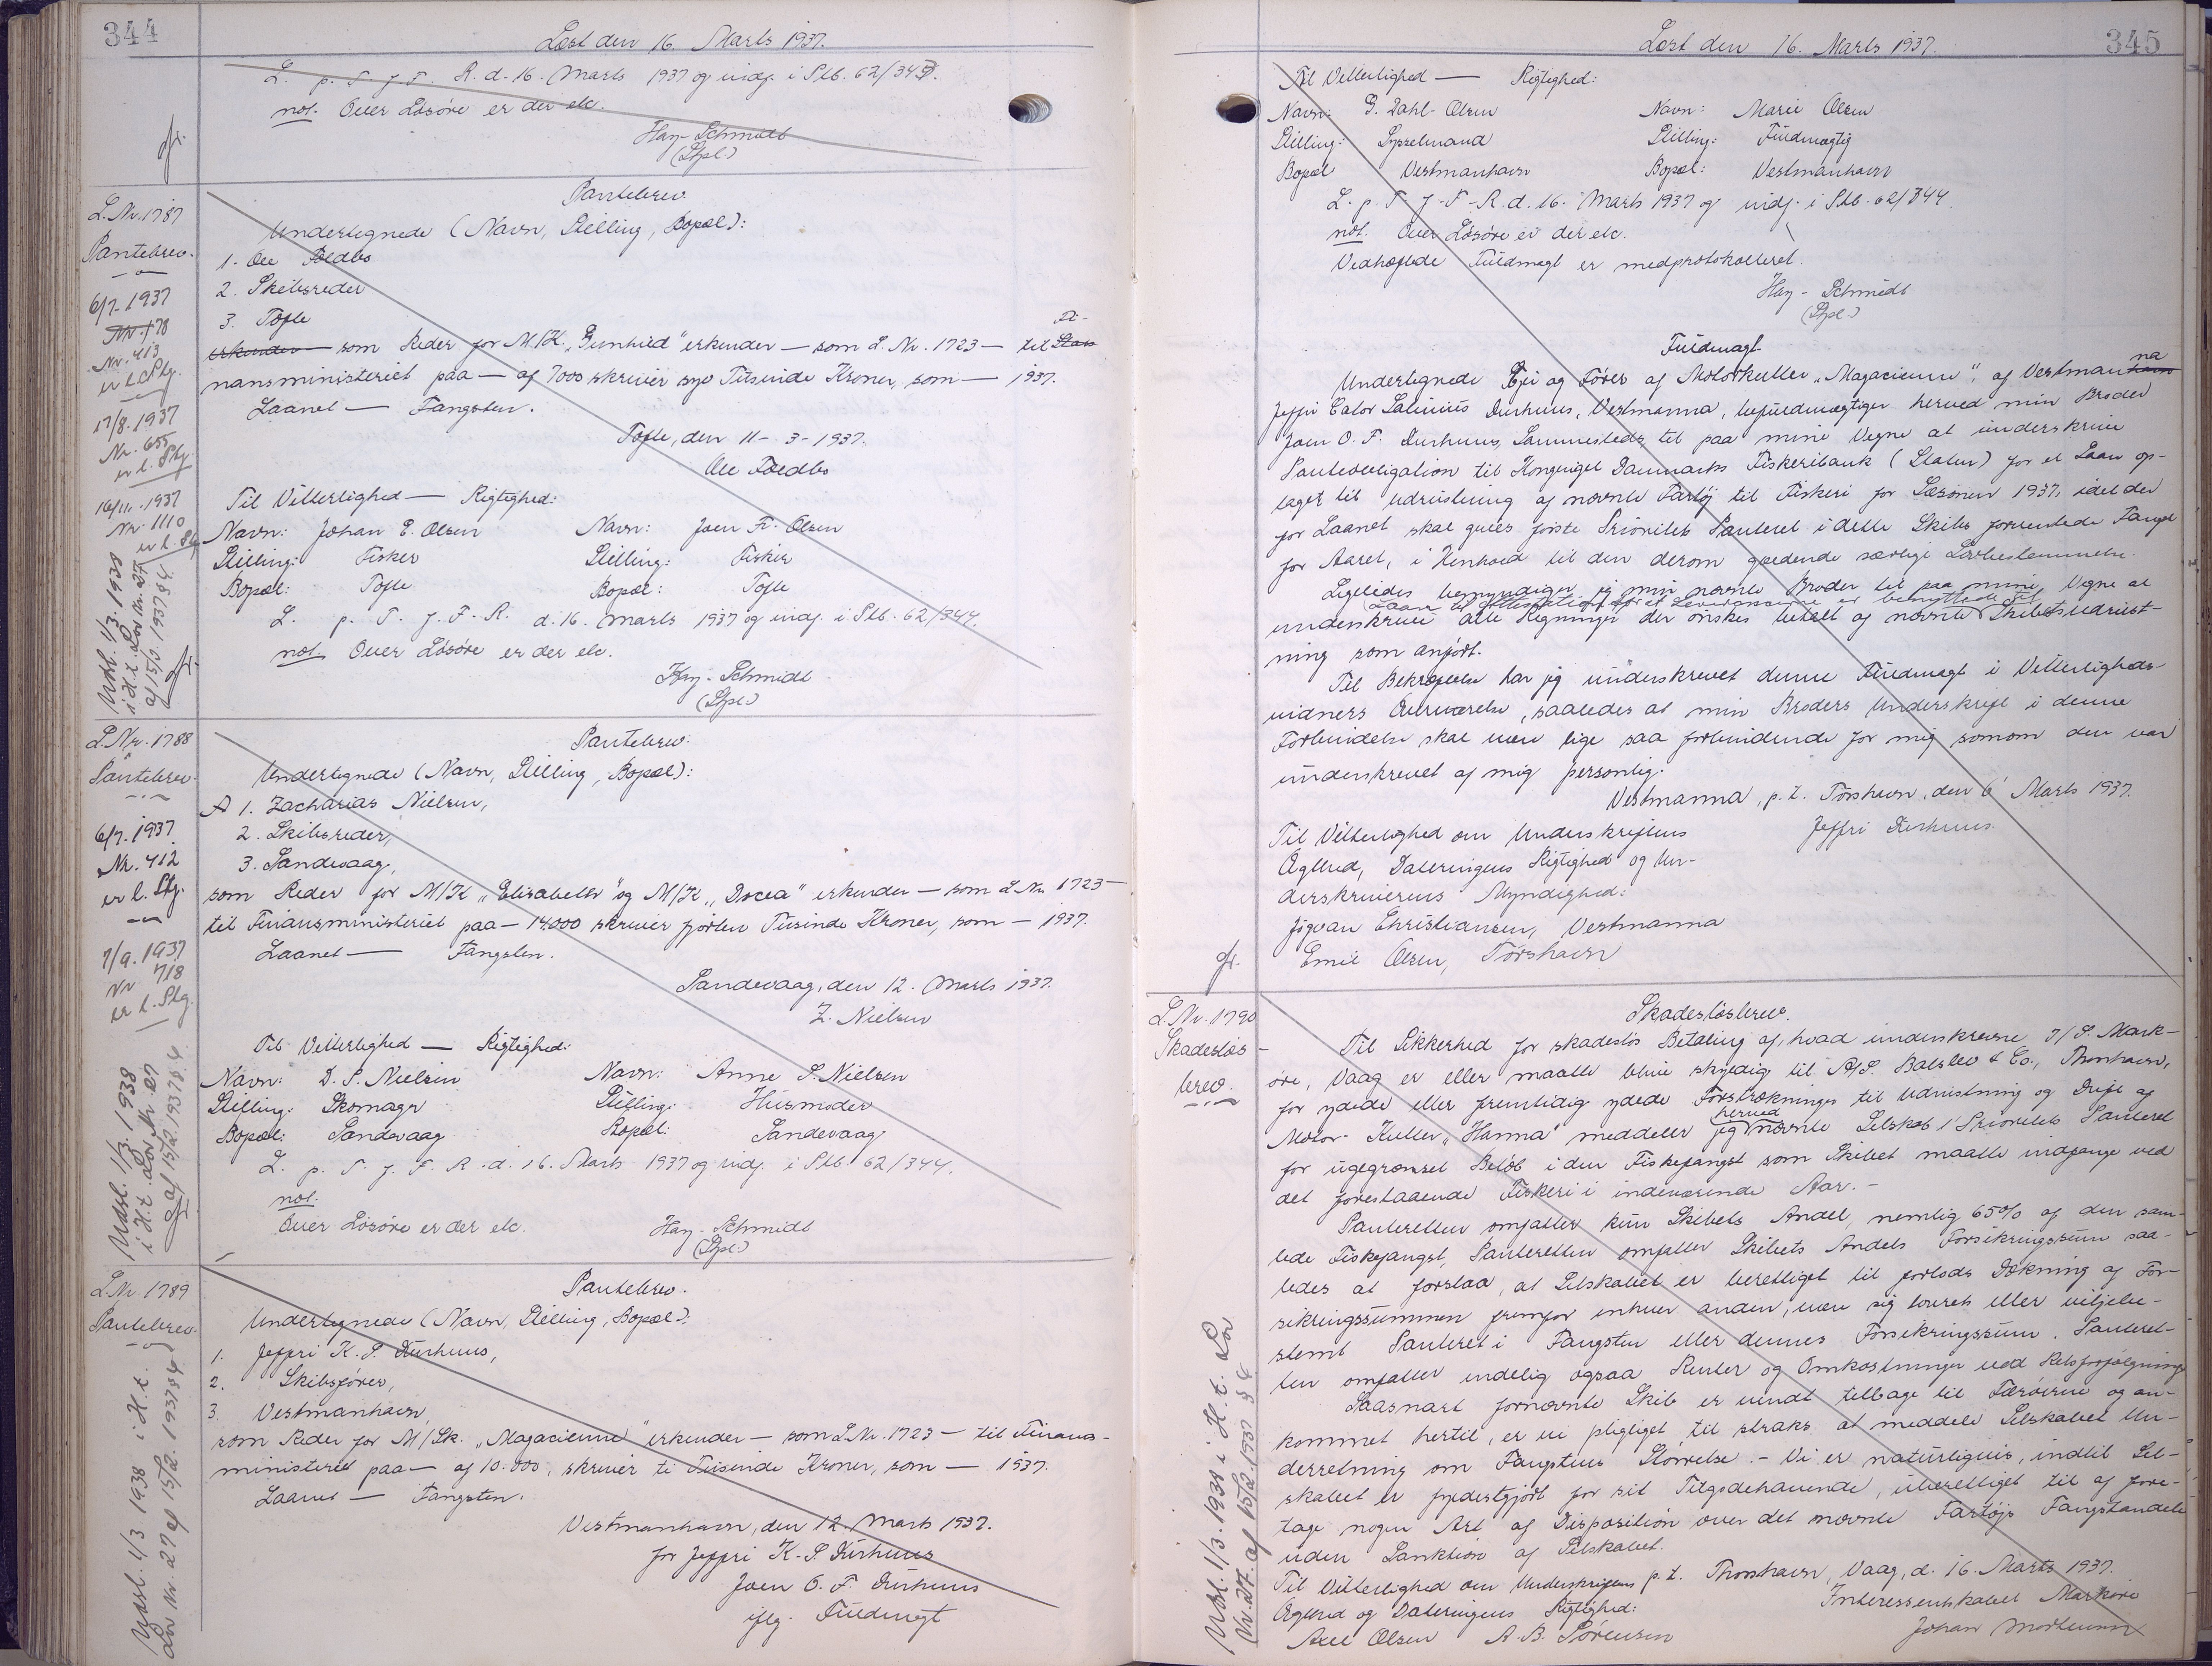 344
Læst den 16. Marts 1937.
L. p. T. f. F. R. d. 16. Marts 1937 og indf. i Stb. 62/343.
not. Over Løsøre er der etc.
Hay-Schmidt
(Stpl.)
L.Nr. 1787
Pantebrev.
6/7-1937
Nr. 178
Nr. 413
er l. Stg.
17/8.1937
Nr. 655
er l. Stg.
16/11.1937
Nr. 1110
er l. Stg.
Udsl. 1/3.1938
i H.t. Lov Nr. 27
af 15/2.1937 §4.
Pantebrev
Undertegnede (Navn, Stilling, Bopæl):
1. Ole Foldbo
2. Skibsreder
3. Tofte
erkender som Reder for M/K. „Gunhild" erkender — som L. Nr. 1723 — til Stats Fi-
nansministeriet paa — af 7000 skriver syv Tusinde Kroner, som — 1937.
Laanet — Fangsten.
Tofte, den 11-3-1937.
Ole Foldbo
Til Vitterlighed — Rigtighed:
Navn: Johan E. Olsen Navn: Joen Fr. Olsen
Stilling: Fisker Stilling: Fisker
Bopæl: Tofte Bopæl: Tofte
L. p. T. f. F. R. d. 16. Marts 1937 og indf. i Stb. 62/344.
not. Over Løsøre er der etc.
Hay-Schmidt
(Stpl.)
L.Nr. 1788
Pantebrev.
6/7.1937.
Nr. 412
er l. Stg.
7/9.1937
Nr 718
er l. Stg.
Udsl. 1/3.1938
i H.t. Lov Nr. 27
af 15/2.1937 §.4.
Pantebrev.
Undertegnede (Navn, Stilling, Bopæl):
A 1. Zacharias Nielsen,
2. Skibsreder,
3. Sandevaag,
som Reder for M/K „Elisabeth" og M/K „Docea" erkender — som L Nr. 1723 —
til Finansministeriet paa — 14.000 skriver fjorten Tusinde Kroner, som — 1937.
Laanet — Fangsten.
Sandevaag, den 12. Marts 1937.
Z. Nielsen
Til Vitterlighed — Rigtighed:
Navn: D. P. Nielsen Navn: Anne S. Nielsen
Stilling: Skomager Stilling: Husmoder
Bopæl: Sandevaag Bopæl: Sandevaag
L. p. T. f. F. R. d. 16. Marts 1937 og indf. i Stb. 62/344.
not.
Over Løsøre er der etc. Hay-Schmidt
(Stpl.)
L.Nr 1789
Pantebrev.
Udsl. 1/3 1938 i H.t.
Lov Nr. 27 af 15/2.1937 §4.
Pantebrev.
Undertegnede (Navn, Stilling, Bopæl):
1. Jeffri K. S. Durhuus,
2. Skibsfører,
3. Vestmanhavn,
som Reder for M/Sk. „Magacienne" erkender — som L Nr. 1723 — til Finans-
ministeriet paa — af 10.000, skriver ti Tusinde Kroner, som — 1937.
Laanet — Fangsten.
Vestmanhavn, den 12. Marts 1937.
for Jeffri K. S. Durhuus
Joen O. F. Durhuus
iflg. Fuldmagt
Læst den 16. Marts 1937.
345
Til Vitterlighed — Rigtighed:
Navn: G. Dahl-Olsen Navn: Marie Olsen
Stilling: Sysselmand Stilling: Fuldmægtig
Bopæl Vestmanhavn Bopæl: Vestmanhavn
L. p. T. f. F. R. d. 16. Marts 1937 og indf. i Stb. 62/344.
not. Over Løsøre er der etc.
Vedhæftede Fuldmagt er medprotokolleret.
Hay-Schmidt
(Stpl.)
Fuldmagt
Undertegnede Ejer og Fører af Motorkutter „Magacienne", af Vestmanhavn na
Jeffri Cator Salinius Durhuus, Vestmanna, befuldmægtiger herved min Broder
Joen O. F. Durhuus, Sammesteds, til paa mine Vegne at underskrive
Panteobligation til Kongeriget Danmarks Fiskeribank (Staten) for et Laan op-
taget til udrustning af nævnte Fartøj til Fiskeri for Sæsonen 1937, idet der
for Laanet skal gives første Prioritets Panteret i dette Skibs forventede Fangst
for Aaret, i Henhold til den derom gældende særlige Lovbestemmelse.
Ligeledes bemyndiger jeg min nævnte Broder til paa mine Vegne at
Laan til Attestation for at Leverancerne er benyttede til
underskrive alle Regninger der ønskes betalt af nævnte Skibets udrust-
ning som anført.
Til Bekræftelse har jeg underskrevet denne Fuldmagt i Vitterligheds-
vidners Overværelse, saaledes at min Broders Underskrift i denne
Forbindelse skal være lige saa forbindende for mig somom den var
underskrevet af mig personlig.
Vestmanna, p.t. Torshavn, den 6' Marts 1937.
Til Vitterlighed om Underskriftens Jeffri Durhuus
Ægthed, Dateringens Rigtighed og Un-
derskriverens Myndighed:
Jógvan Christiansen, Vestmanna
Emil Olsen, Torshavn
L.Nr. 1790
Skadesløs-
brev.
Udsl. 1/3.1938 i H.t. Lov
Nr. 27 af 15/2.1937 § 4.
Skadesløsbrev.
Til Sikkerhed for skadesløs Betaling af, hvad underskrevne I/S. Mark-
øre, Vaag er eller maatte blive skyldig til A/S. Balslev & Co., Thorshavn,
for ydede eller fremtidig ydede Forstrækninger til Udrustning og Drift af
Motor-Kutter „Hanna" meddeler jeg herved nævnte Selskab 1' Prioritets Panteret
for ugegrænset Beløb i den Fiskefangst som Skibet maatte indfange ved
det forestaaende Fiskeri i indeværende Aar. -
Panteretten omfatter kun Skibets Andel, nemlig 65% af den sam-
lede Fiskefangst, Panteretten omfatter Skibets Andels Forsikringssum saa-
ledes at forstaa, at Selskabet er berettiget til forlods Dækning af For-
sikringssummen fremfor enhver anden, være sig lovret eller viljebe-
stemt Panteret i Fangsten eller dennes Forsikringssum. Panteret-
ten omfatter endelig ogsaa Renter og Omkostninger ved Retsforfølgning.
Saasnart fornævnte Skib er vendt tilbage til Færøerne og an-
kommet hertil, er vi pligtiget til straks at meddele Selskabet Un-
derretning om Fangstens Størrelse. - Vi er naturligvis, indtil Sel-
skabet er fyldestgjort for sit Tilgodehavende, uberettiget til af fore-
tage nogen Art af Disposition over det nævnte Fartøjs Fangstandele
uden Sanktion af Selskabet.
Til Vitterlighed om Underskriftens p.t. Thorshavn, Vaag, d. 16. Marts 1937.
Ægthed og Dateringens Rigtighed: Interessentskabet Markøre
Axel Olsen A. B. Sørensen Johan Mortensen